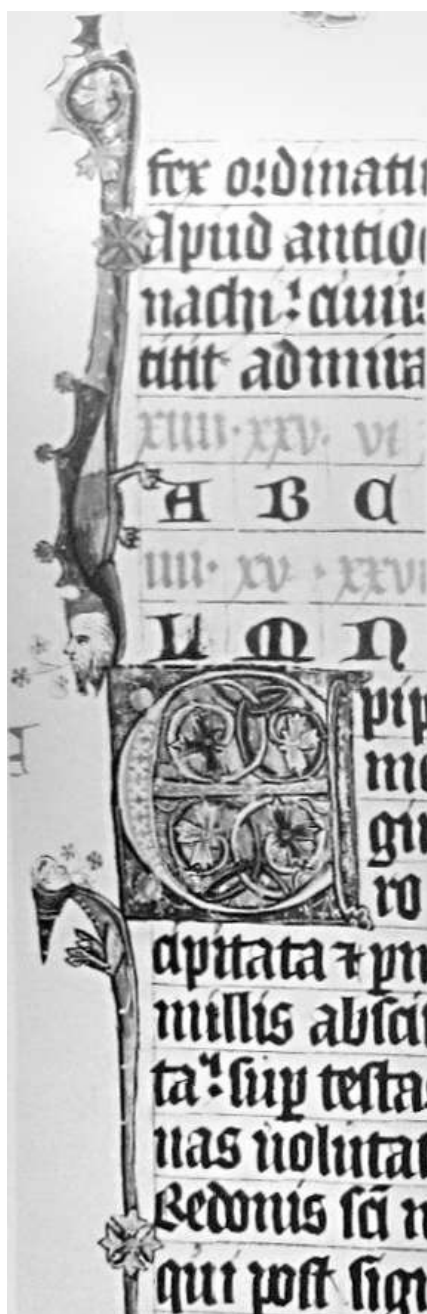 fex ordinatu
Apud antio
nachi: ciuis
titit admira
xiiii. xxv. vi
A B C
iiii. xv. xxvi
L M N
E pip
mo
gin
ro
capitata ⁊ pri
millis absci
ta: sup testas
uas uolutat
Redonis sci m
qui post sign